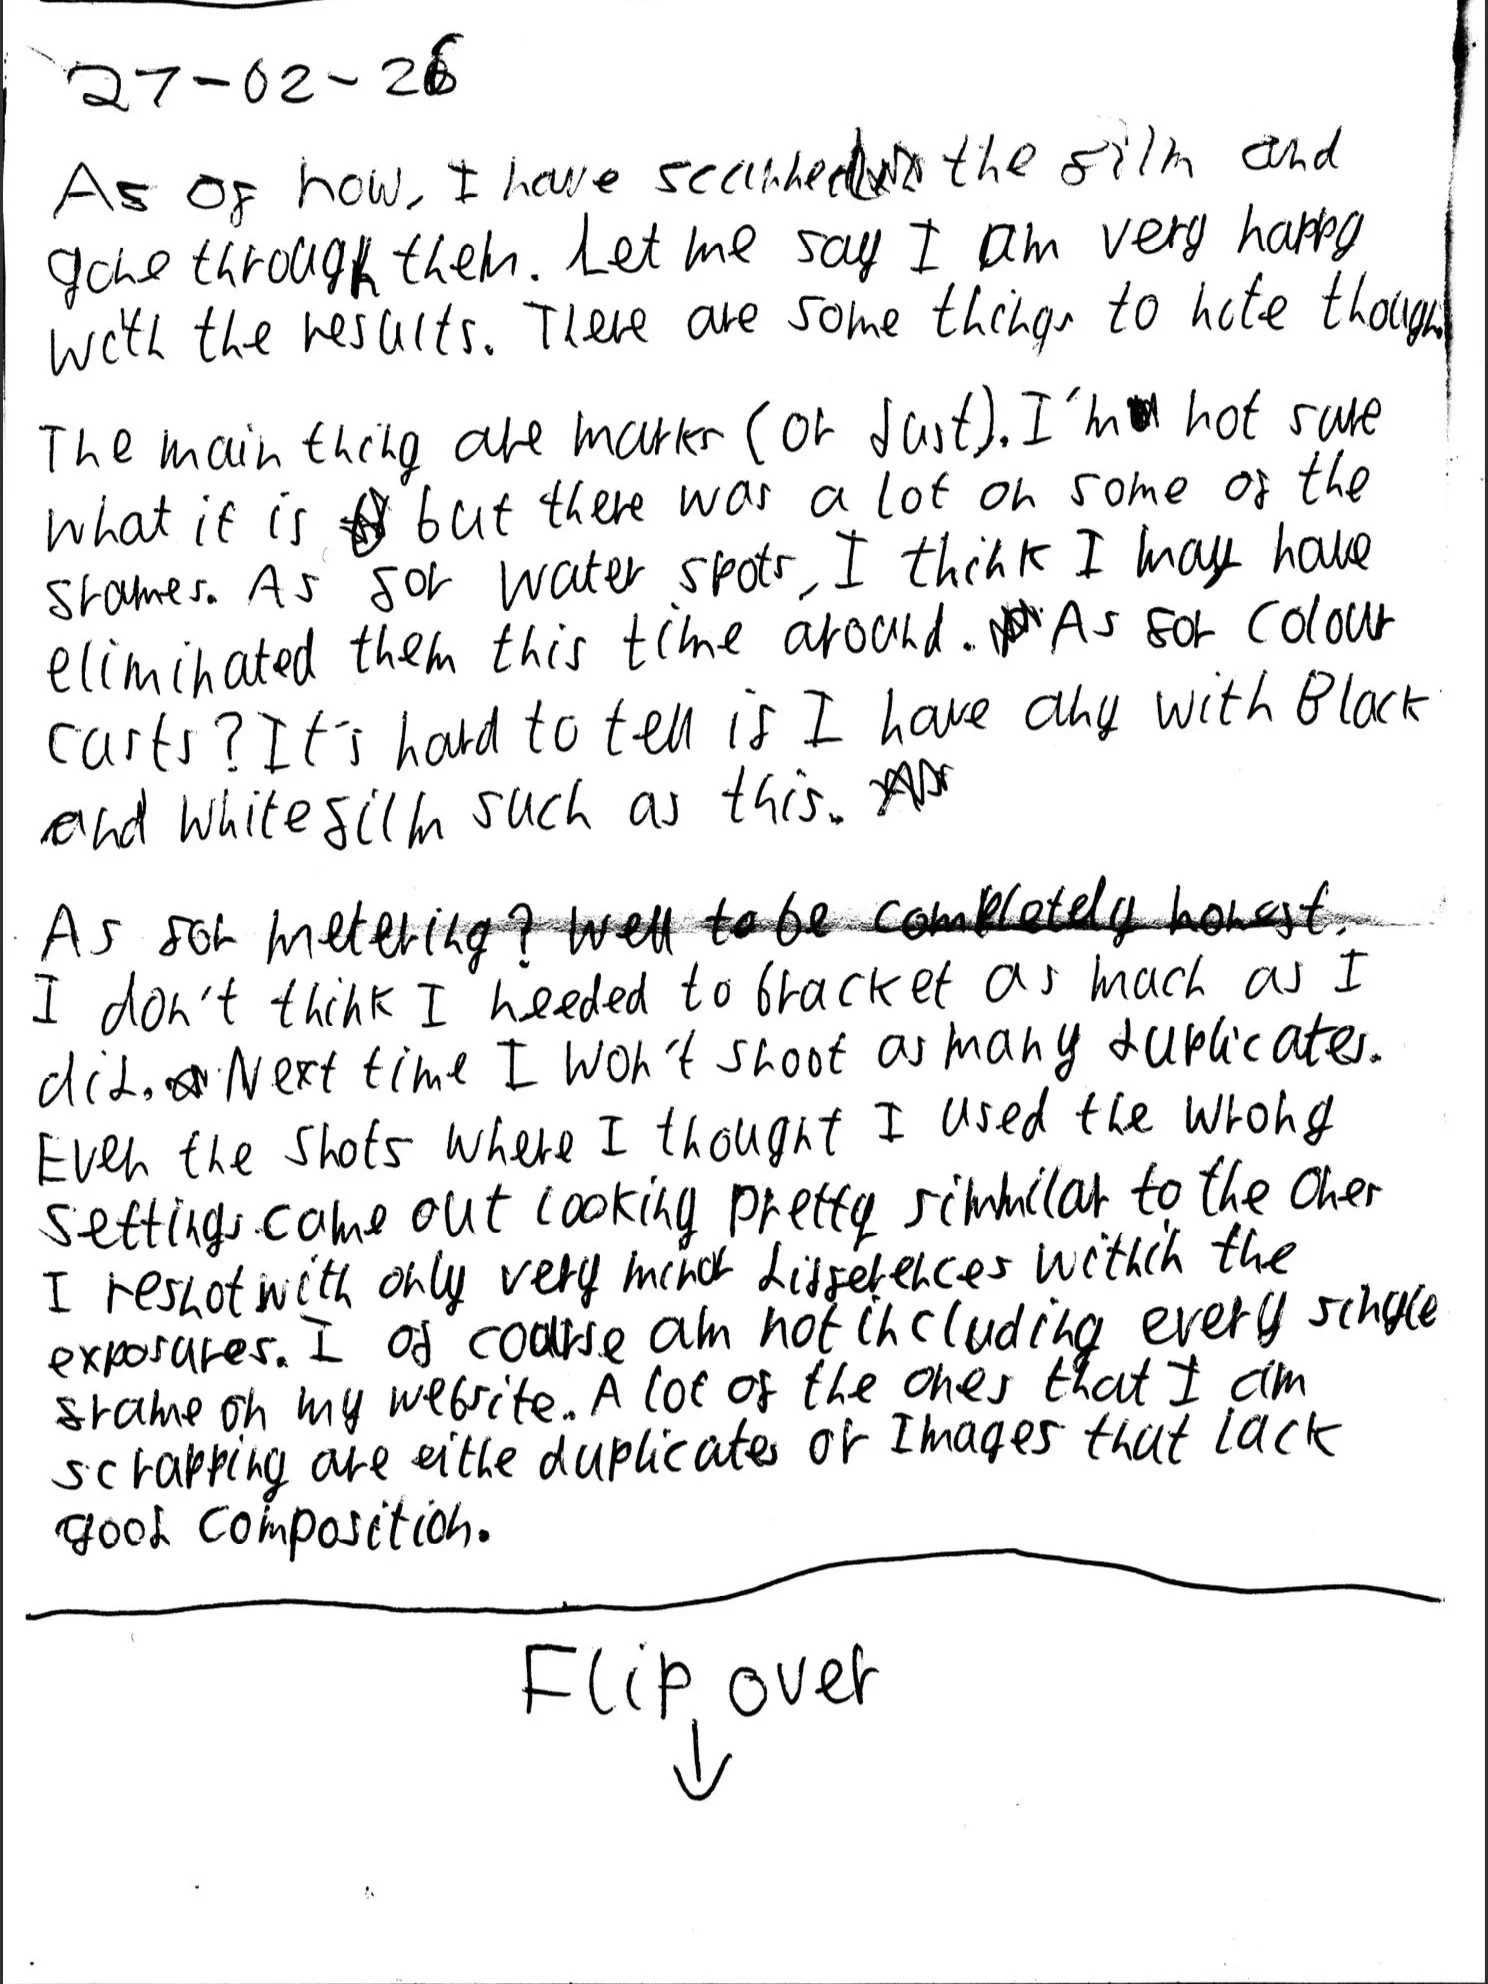 27-02-26
As of now, I have scanned the film and
gone through them. Let me say I am very happy
with the results. There are some things to note though
The main thing are marks (or dust). I'm not sure
what it is but there was a lot on some of the
frames. As for water spots, I think I may have
eliminated them this time around. As for colour
casts? It's hard to tell if I have any with Black
and white film such as this.
As for metering? Well to be completely honest.
I don't think I needed to bracket as much as I
did. Next time I won't shoot as many duplicates.
Even the shots where I thought I used the wrong
settings came out looking pretty simmilar to the oner
I reshot with only very minor differences within the
exposures. I of coarse am not including every single
frame on my website. A lot of the ones that I am
scrapping are eithe duplicates or Images that lack
good composition.
Flip over
↓